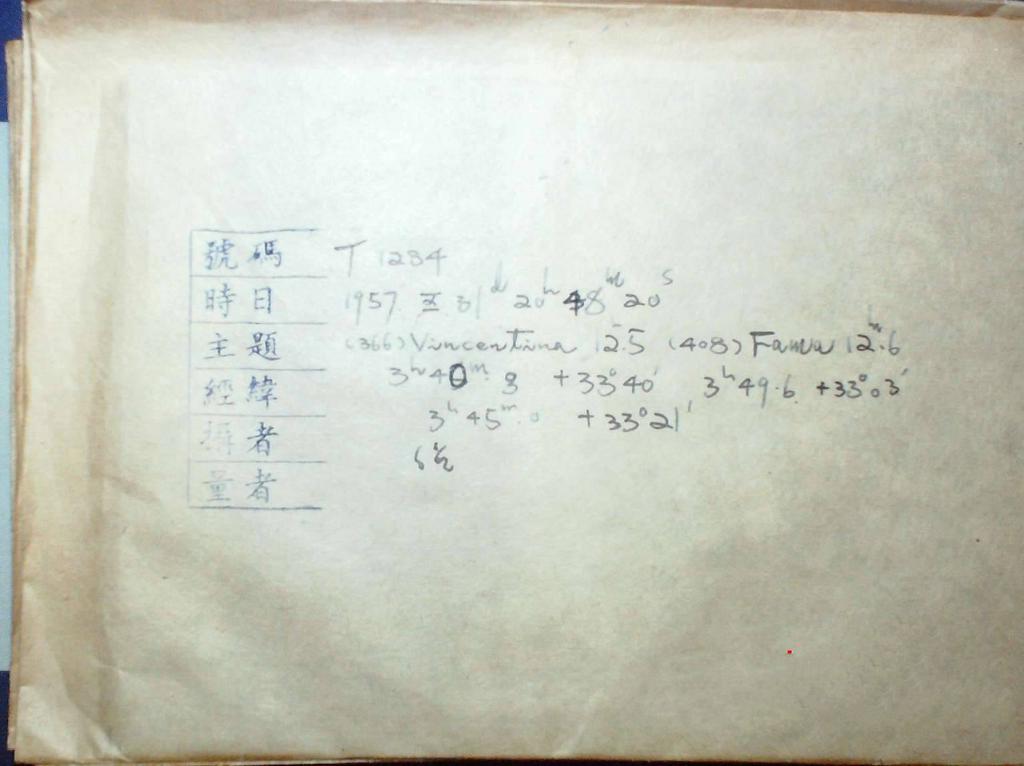 號碼 T 1234
時日 1957 31ᵈ 20ʰ 48ᵐ 20ˢ
主題 (366) Vincentina 12.5 (408) Fama 12ᵐ.6
經緯 3ʰ 40ᵐ. 8 +33°40' 3ʰ 49.6 +33°03'
3ʰ 45ᵐ.0 +33°21'
攝者
量者